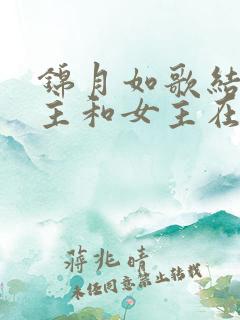 锦月如歌结
主和女主在
蒋兆晴
未经同意禁止转载